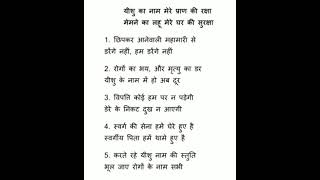 यीशु का नाम मेरे प्राण की रक्षा
मेमने का लहू मेरे घर की सुरक्षा
1. छिपकर आनेवाली महामारी से
डरेंगे नहीं, हम डरेंगे नहीं
2. रोगों का भय, और मृत्यु का डर
यीशु के नाम में हो अब दूर
3. विपत्ति कोई हम पर न पड़ेगी
डेरे के निकट दुख न आएगी
4. स्वर्ग की सेना हमें घेरे हुए है
स्वर्गीय पिता हमें थामे हुए है
5. करते रहे यीशु नाम की स्तुति
भूल जाए रोगों के नाम सभी